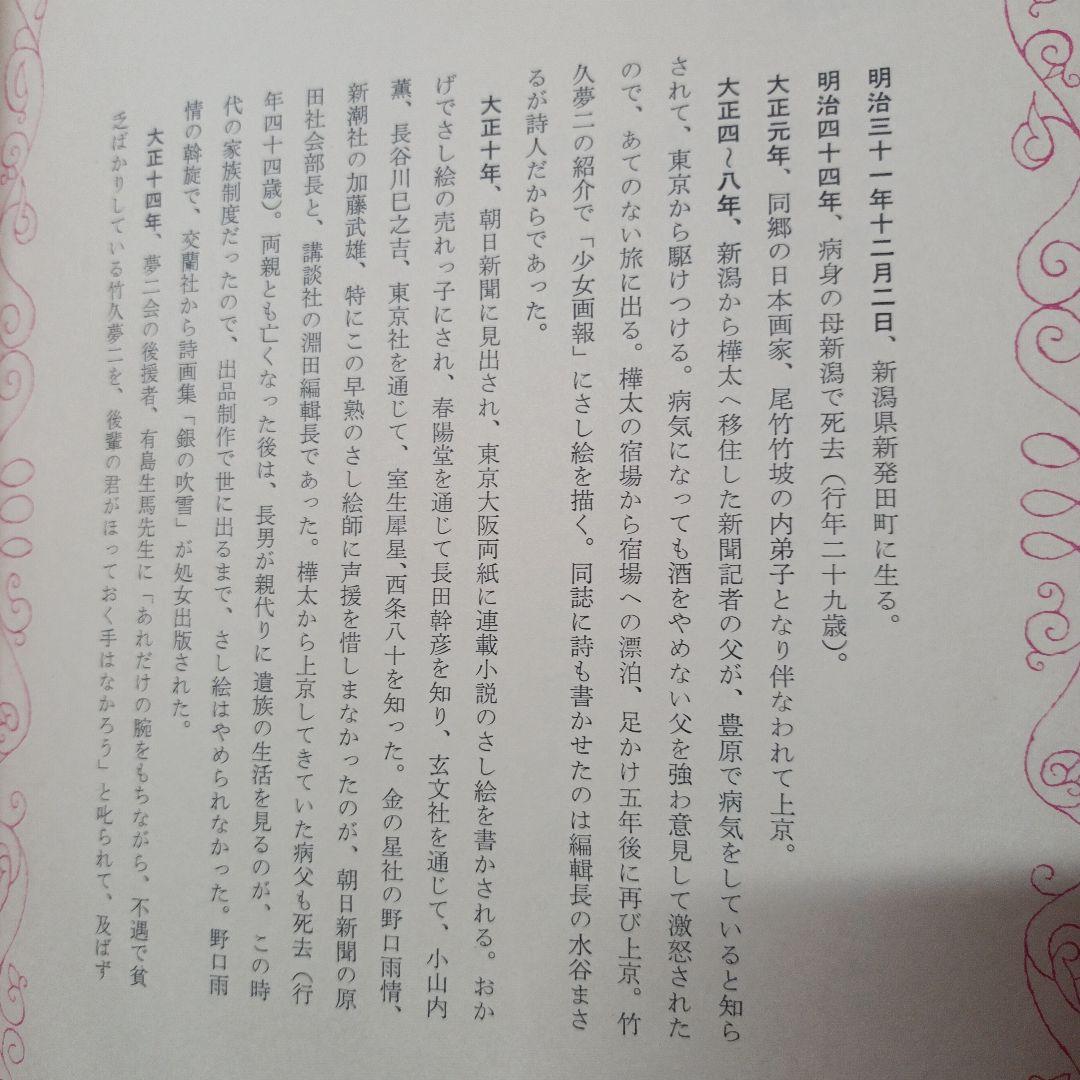 明治三十一年十二月二日、新潟県新発田町に生る。
明治四十四年、病身の母新潟で死去（行年二十九歳）。
大正元年、同郷の日本画家、尾竹竹坡の内弟子となり伴なわれて上京。
大正四〜八年、新潟から樺太へ移住した新聞記者の父が、豊原で病気をしていると知ら
されて、東京から駆けつける。病気になっても酒をやめない父を強わ意見して激怒された
ので、あてのない旅に出る。樺太の宿場から宿場への漂泊、足かけ五年後に再び上京。竹
久夢二の紹介で「少女画報」にさし絵を描く。同誌に詩も書かせたのは編輯長の水谷まさ
るが詩人だからであった。
大正十年、朝日新聞に見出され、東京大阪両紙に連載小説のさし絵を書かされる。おか
げでさし絵の売れっ子にされ、春陽堂を通じて長田幹彦を知り、玄文社を通じて、小山内
薫、長谷川巳之吉、東京社を通じて、室生犀星、西条八十を知った。金の星社の野口雨情、
新潮社の加藤武雄、特にこの早熟のさし絵師に声援を惜しまなかったのが、朝日新聞の原
田社会部長と、講談社の淵田編輯長であった。樺太から上京してきていた病父も死去（行
年四十四歳）。両親とも亡くなった後は、長男が親代りに遺族の生活を見るのが、この時
代の家族制度だったので、出品制作で世に出るまで、さし絵はやめられなかった。野口雨
情の斡旋で、交蘭社から詩画集「銀の吹雪」が処女出版された。
大正十四年、夢二会の後援者、有島生馬先生に「あれだけの腕をもちながら、不遇で貧
乏ばかりしている竹久夢二を、後輩の君がほっておく手はなかろう」と叱られて、及ばず